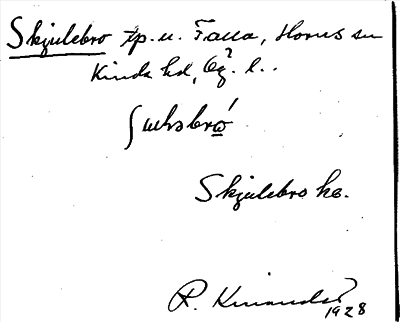 Skjulebro tp. u. Falla, Horns sn
Kinda hd, Ög. l..
Skjulebro ke.
R. Kinander
1928